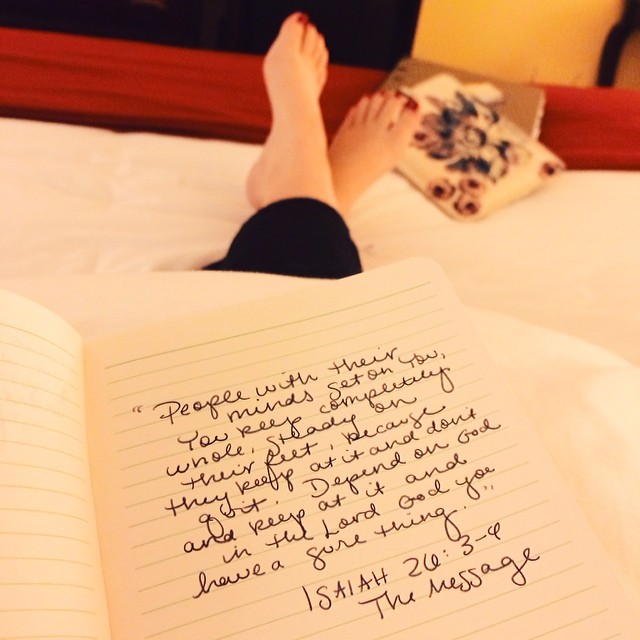 "People with their
minds set on You,
You keep completely
whole, Steady on
their feet, because
they keep at it and don't
quit. Depend on God
and keep at it and
in the Lord God you
have a sure thing."
ISAIAH 26:3-4
The Message